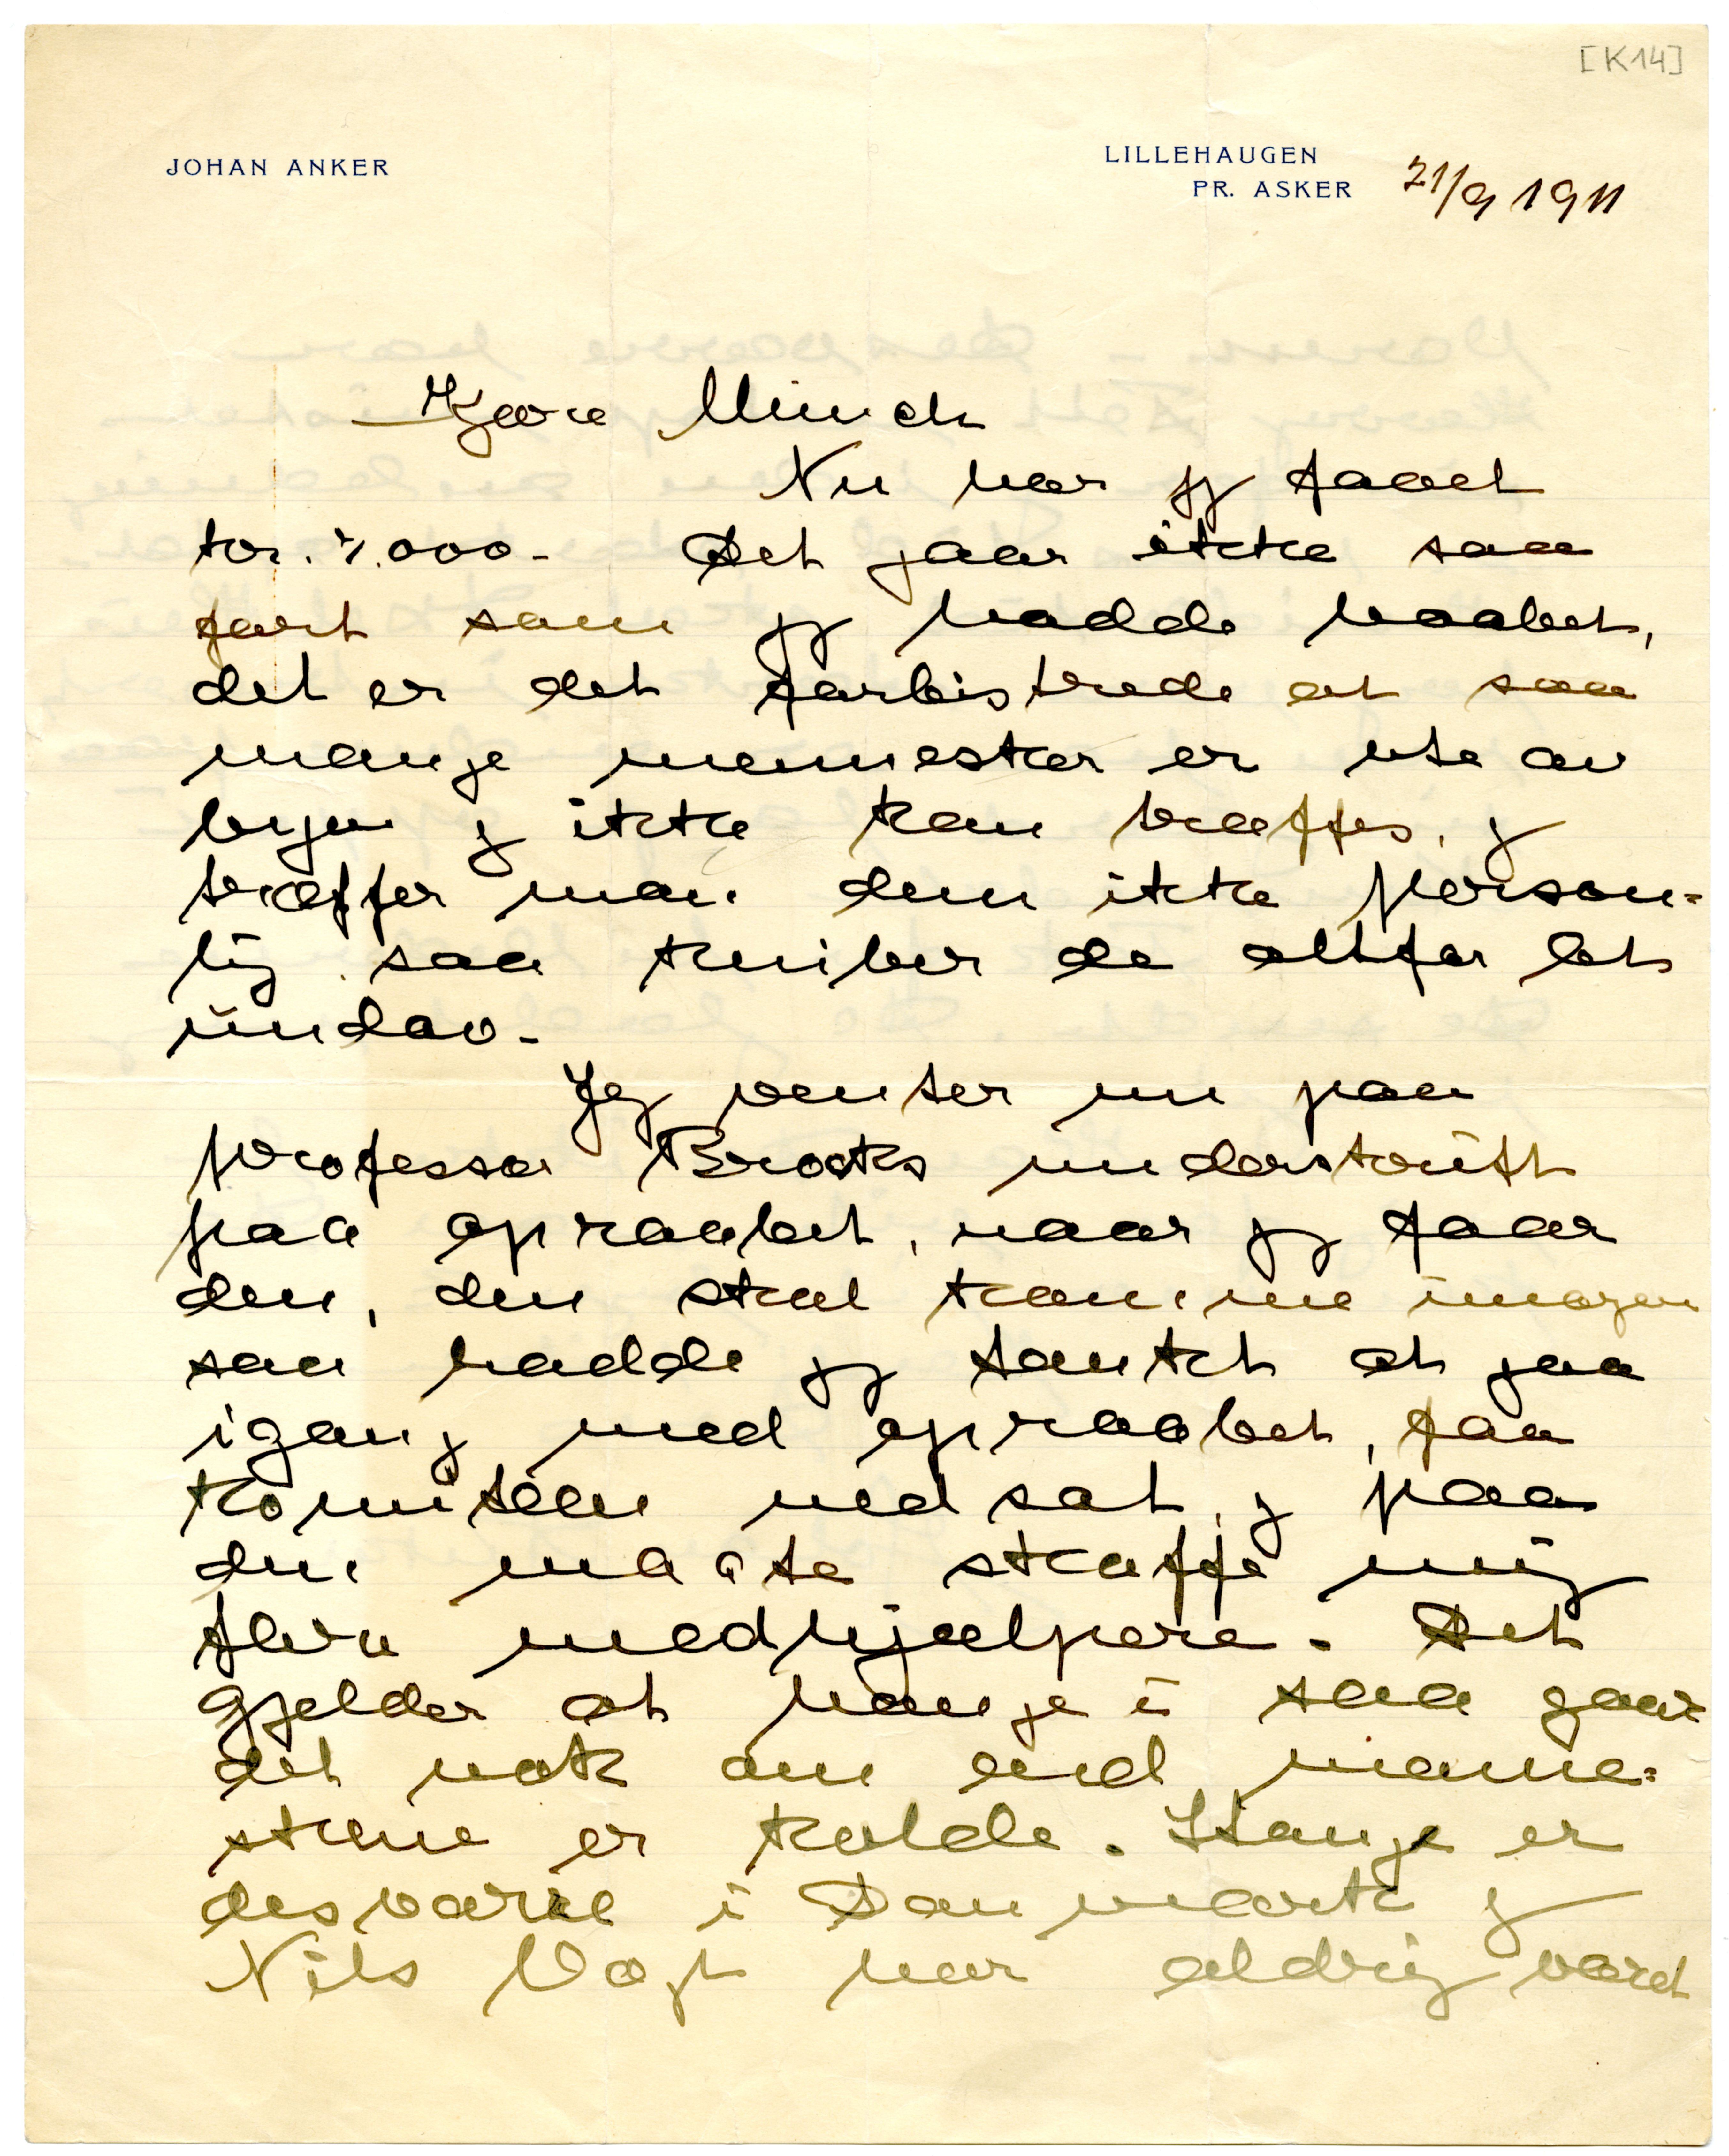 [K14]
JOHAN ANKER
LILLEHAUGEN
PR. ASKER 21/9 1911
Kjære Munch
Nu har jeg faaet
kr. 7.000 - Det gaar ikke saa
fort som jeg hadde haabet,
det er det forbistrede at saa
mange mennesker er ute av
byen og ikke kan træffes, og
træffer man dem ikke person=
lig saa kniber de altfor let
undav -
Jeg venter nu paa
professor Brocks underskrift
paa opraabet, naar jeg faar
den, den skal komme imorgen
saa hadde jeg tænkt at gaa
igang med opraabet, faa
komiteen nedsat, og paa
den maate skaffe mig
flere medhjælpere - Det
gjelder at hænge i saa gaar
det nok om end menne=
skene er kolde. Stange er
desværre i Danmark og
Nils Vogt har aldrig været